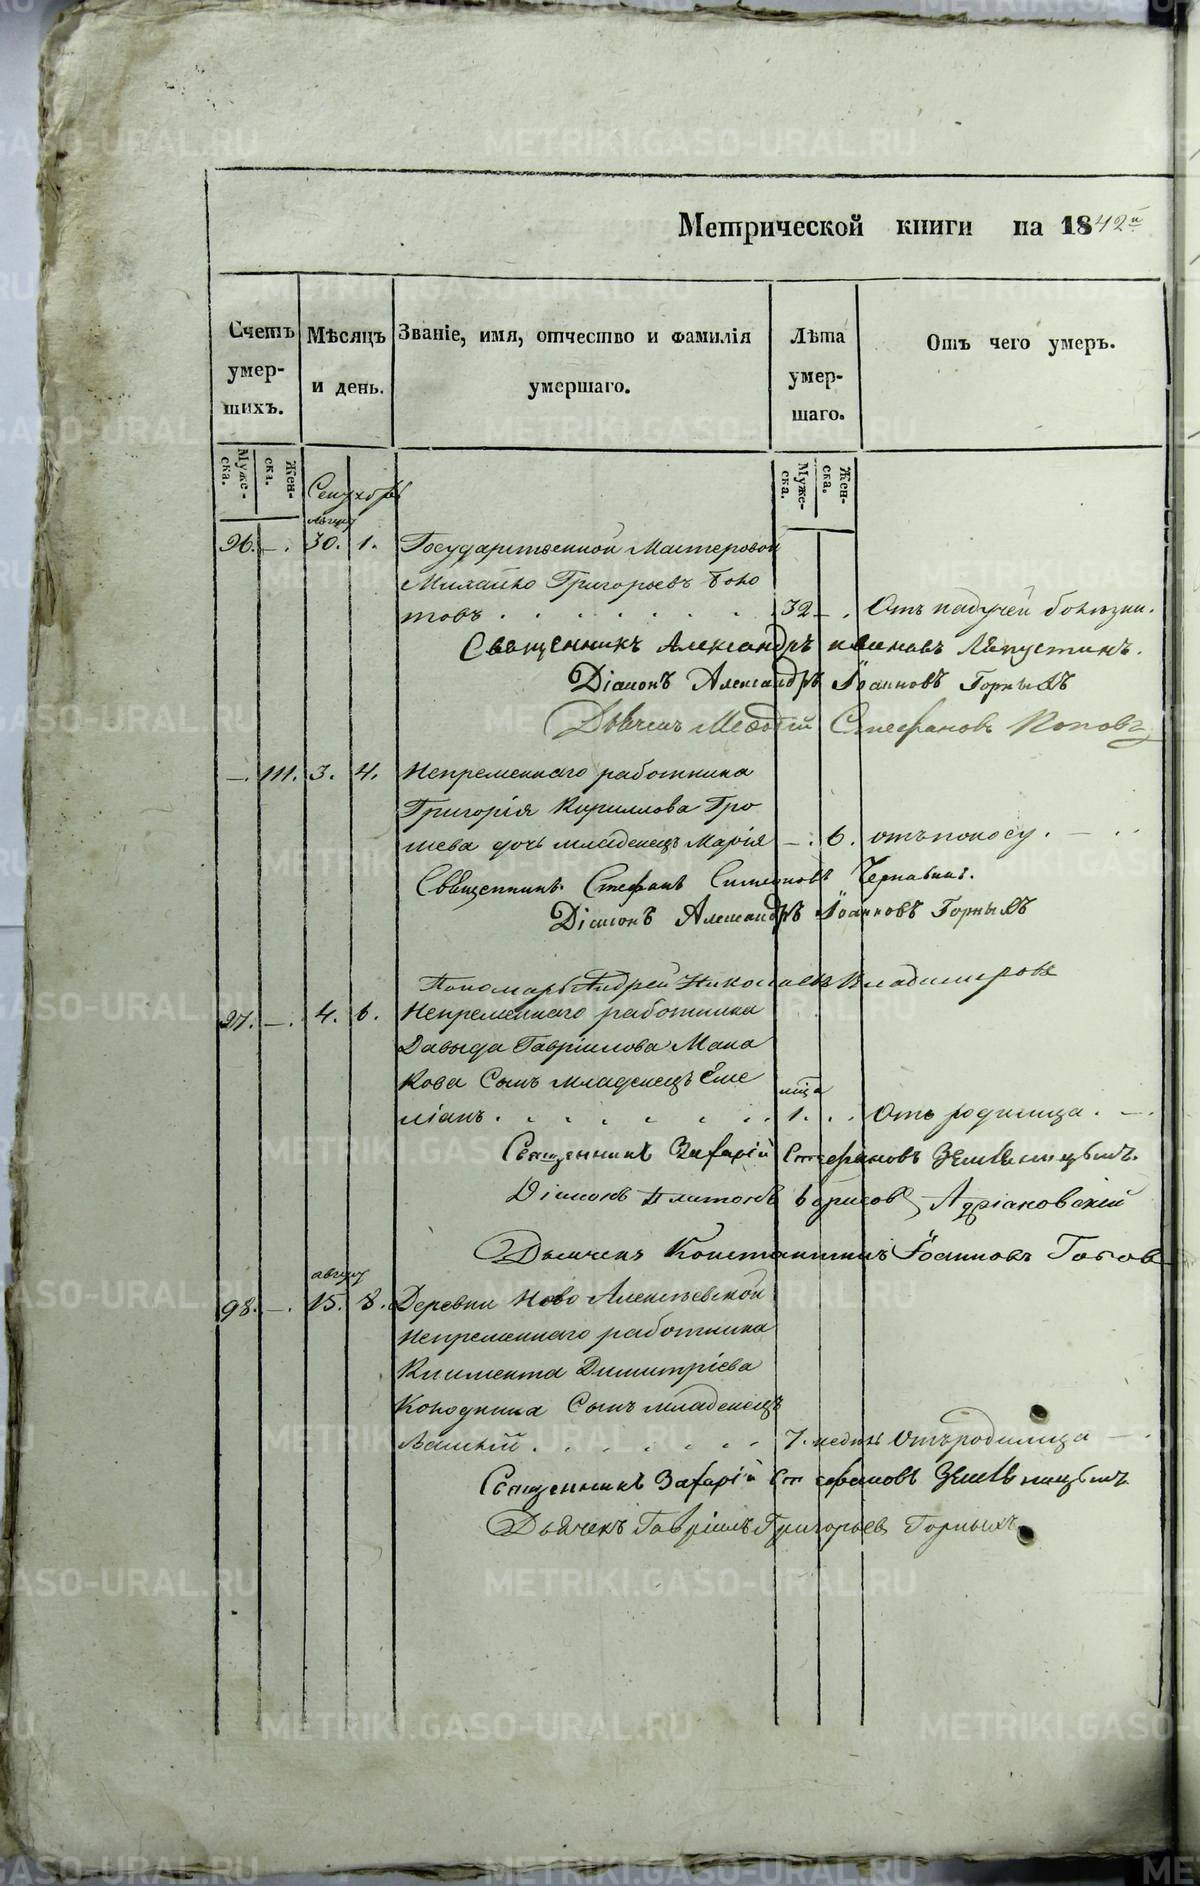 Метрической книги на 1842й
Счетъ умер- шихъ.
Мѣсяцъ и день.
Званіе, имя, отчество и фамилія умершаго.
Лѣта умер- шаго.
Отъ чего умеръ.
Муже- ска.
Жен- ска.
Муже- ска.
Жен- ска.
Сентябрь
август
96. —. 30. 1. Государственной Мастеровой
Михайло Григорьевъ Боло
товъ . . . . . . . 32 — . Отъ падучей болѣзни.
Священникъ Александръ Ляпустинъ.
Діаконъ Александръ Іоанновъ Горныхъ
Дьячекъ Меѳодій Стефановъ Поповъ
—. 111. 3. 4. Непременнаго работника
Григорія Кириллова Гро
шева дочь младенецъ Марія —. 6. отъ поносу. — . .
Священникъ Стефанъ Симеоновъ Чернавинъ.
Діаконъ Александръ Іоанновъ Горныхъ
Пономарь Андрей Николаевъ Владимировъ
97. —. 4. 6. Непременнаго работника
Давыда Гавріилова Мака
рова Сынъ младенецъ Еме
ліанъ . . . . . . . 1. . . Отъ родимца . — .
Священникъ Захарій Стефановъ Земляницынъ.
Діаконъ Платонъ Борисовъ Адріановскій
Дьячекъ Константинъ Іоанновъ
август
98. —. 15. 8. Деревни Ново Алексѣевской
Непременнаго работника
Климента Димитріева
Колодкина Сынъ младенецъ
. . . . . . 7. недѣль Отъ родимца — .
Священникъ Захарій Стефановъ Земляницынъ
Дьячекъ Гавріилъ Григорьевъ Горныхъ
METRIKI.GASO-URAL.RU